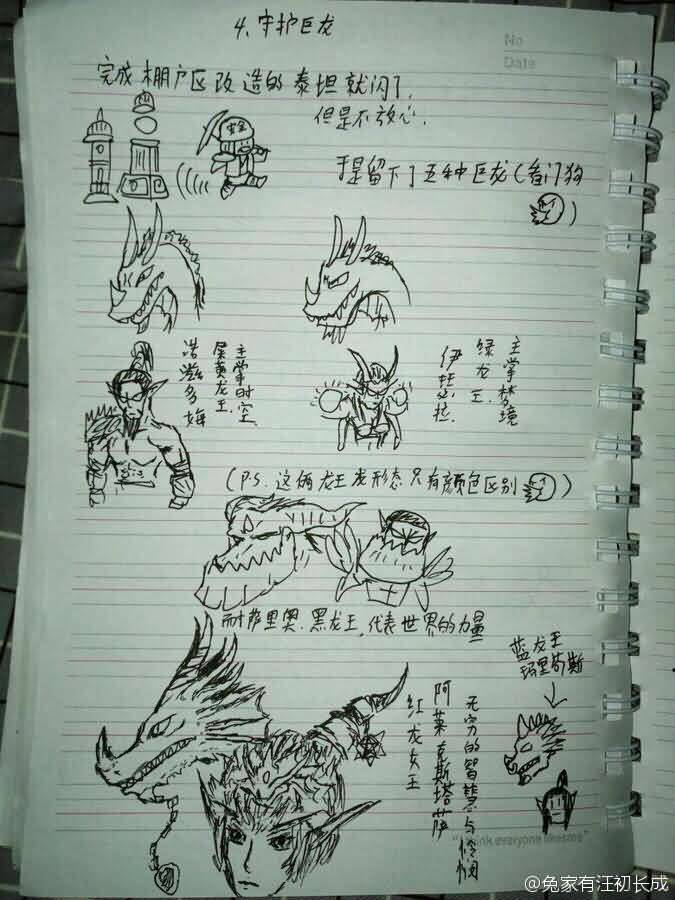 4、守护巨龙
No
Date
完成棚户区改造的泰坦就闪了，
但是不放心.
于是留下了五种巨龙(看门狗
)
安全
主掌时空
屎黄龙王.
诺兹多姆
主掌梦境
绿龙王.
伊拉
(P.S. 这俩龙王龙形态只有颜色区别
)
耐萨里奥.黑龙王.代表世界的力量
蓝龙王
玛里苟斯
无穷的智慧与怜悯
阿莱克斯塔萨
红龙女王
think everyone likes me"
@兔家有汪初长成